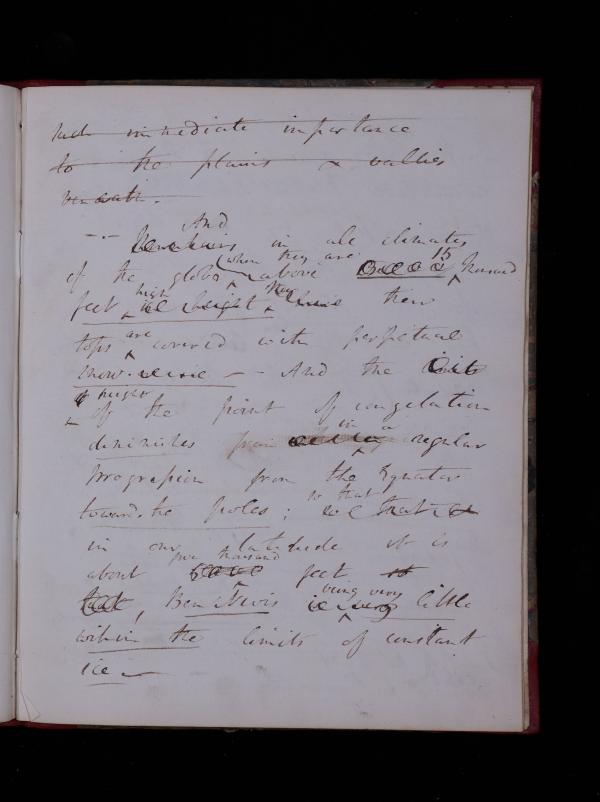 such immediate importance
to the plains & vallies
beneath.
— And
in all climates
of the globe (when they are above 15 thousand
feet high their
tops are covered with perpetual
snow. — And the
height
of the point of congelation
diminishes from in a regular
progression from the Equator
towards the poles; so that
in our latitude it is
about five thousand feet
Ben Nevis being very little
within the limits of constant
ice —